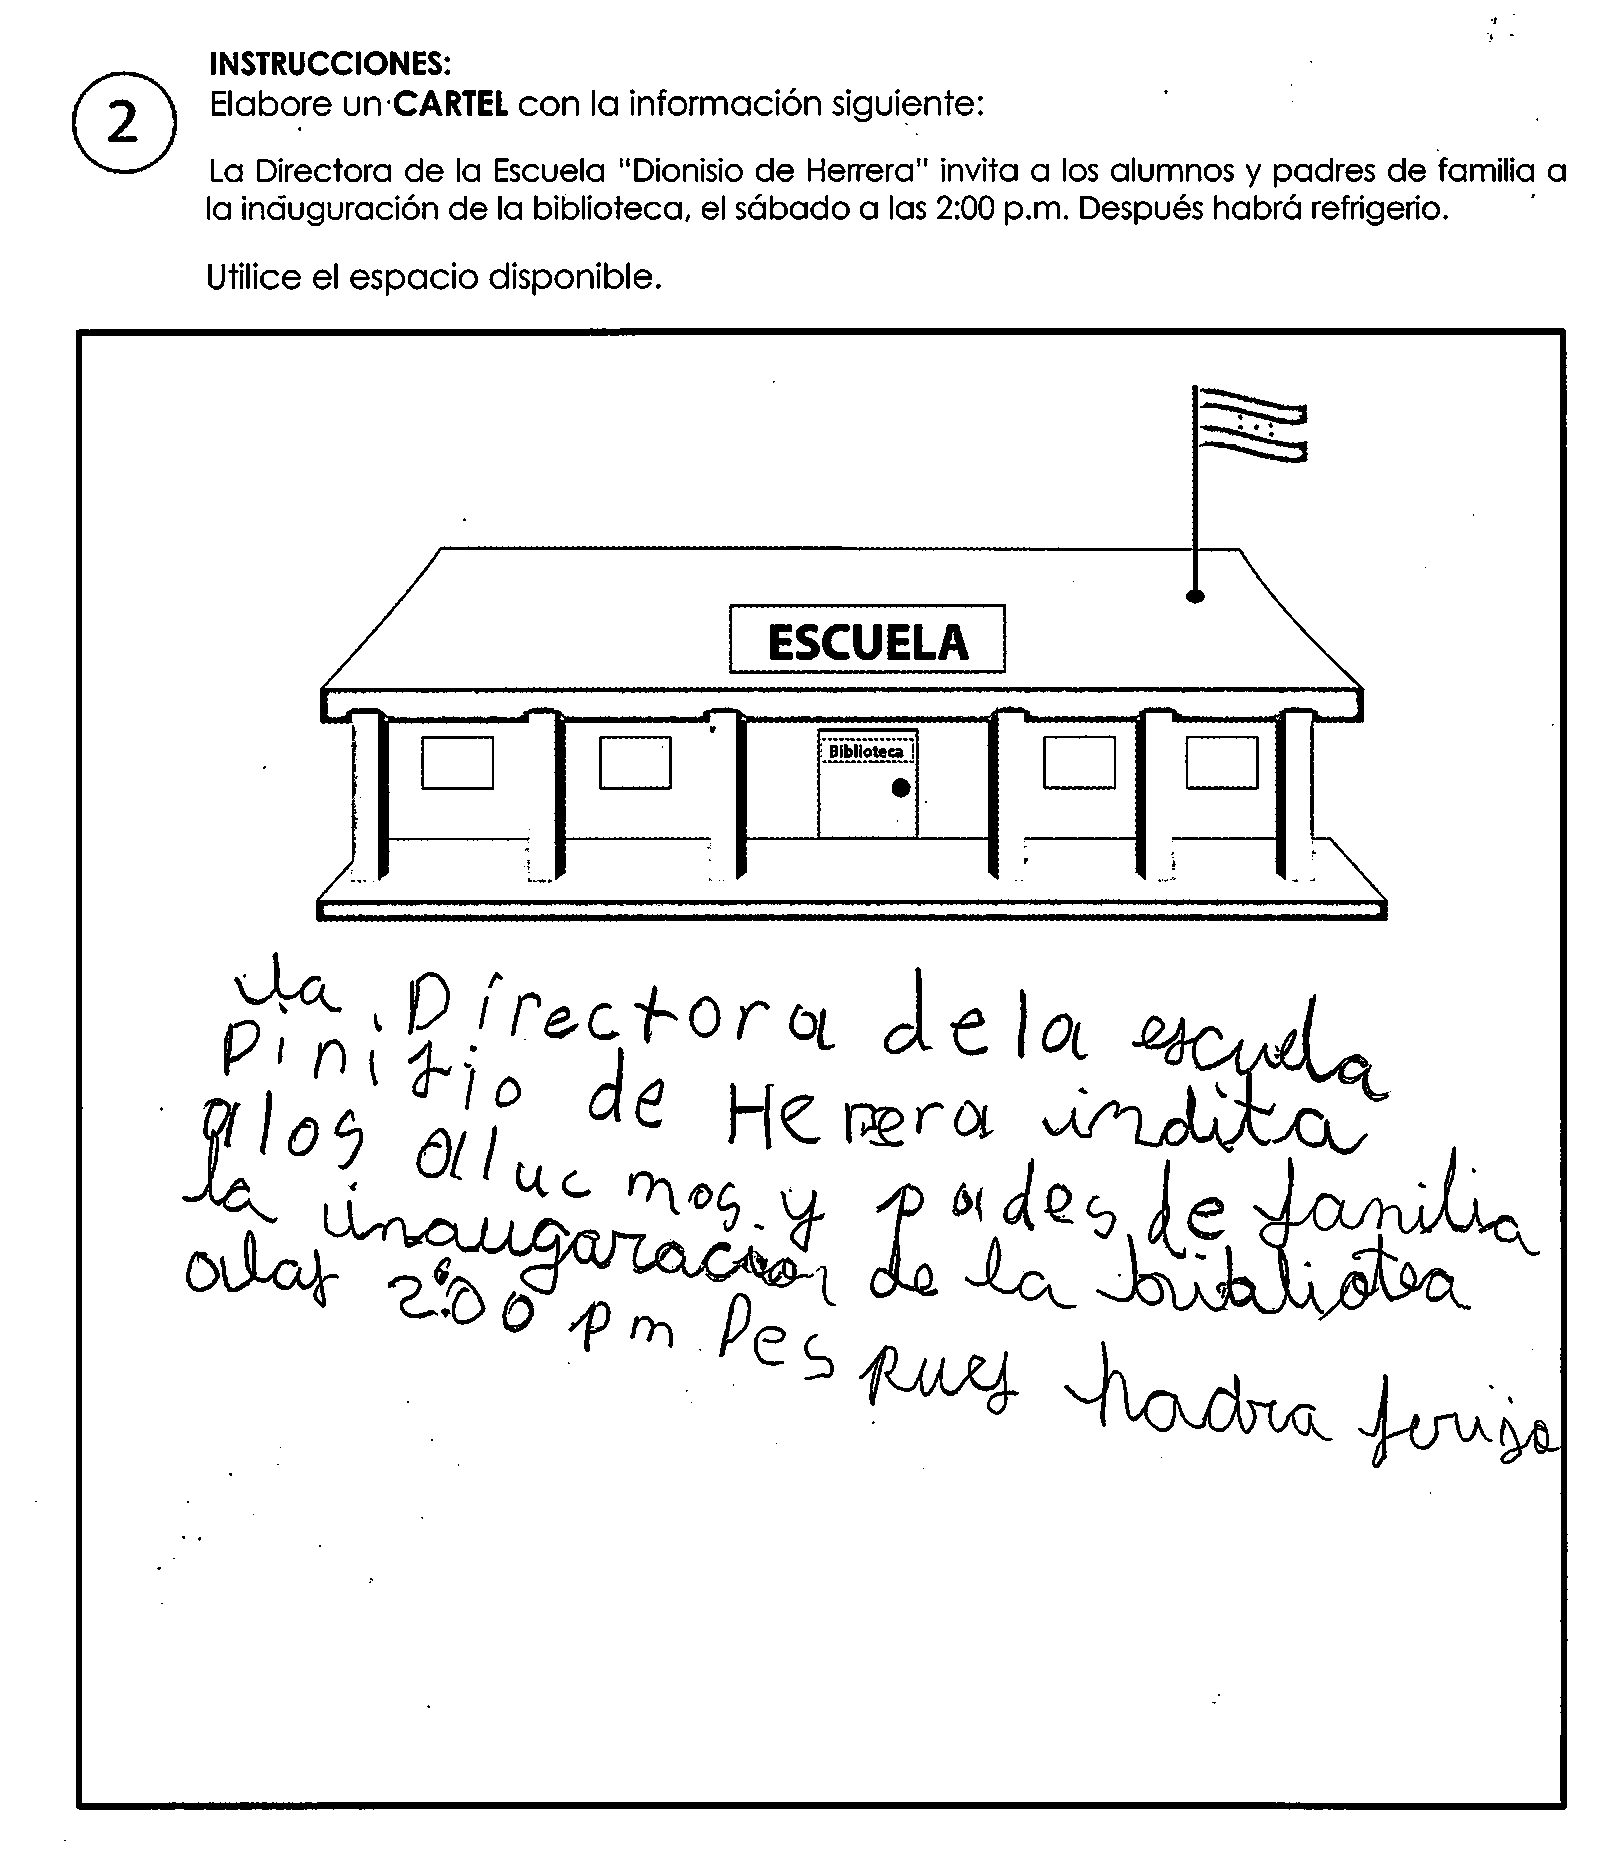 INSTRUCCIONES:
2
Elabore un CARTEL con la información siguiente:
La Directora de la Escuela "Dionisio de Herrera" invita a los alumnos y padres de familia a
la inauguración de la biblioteca, el sábado a las 2:00 p.m. Después habrá refrigerio.
Utilice el espacio disponible.
ESCUELA
Biblioteca
la Directora de la escuela
Dinisio de Herrera indita
a los alucmos y pades de familia
la inaugaracion de la bibaliotea
alas 2:00 pm Despues hadra